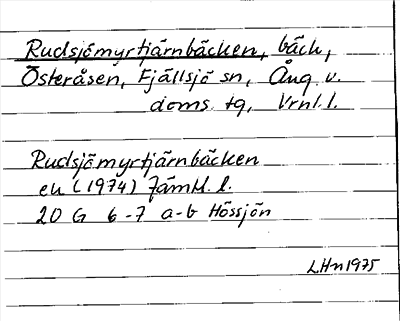 Rudsjömyrtjärnbäcken, bäck,
Österåsen, Fjällsjö sn, Ång. v.
doms. tg, Vrnl. l.
Rudsjömyrtjärnbäcken
ek (1974) Jämtl. l.
20 G 6-7 a-b Hössjön
LHn 1975